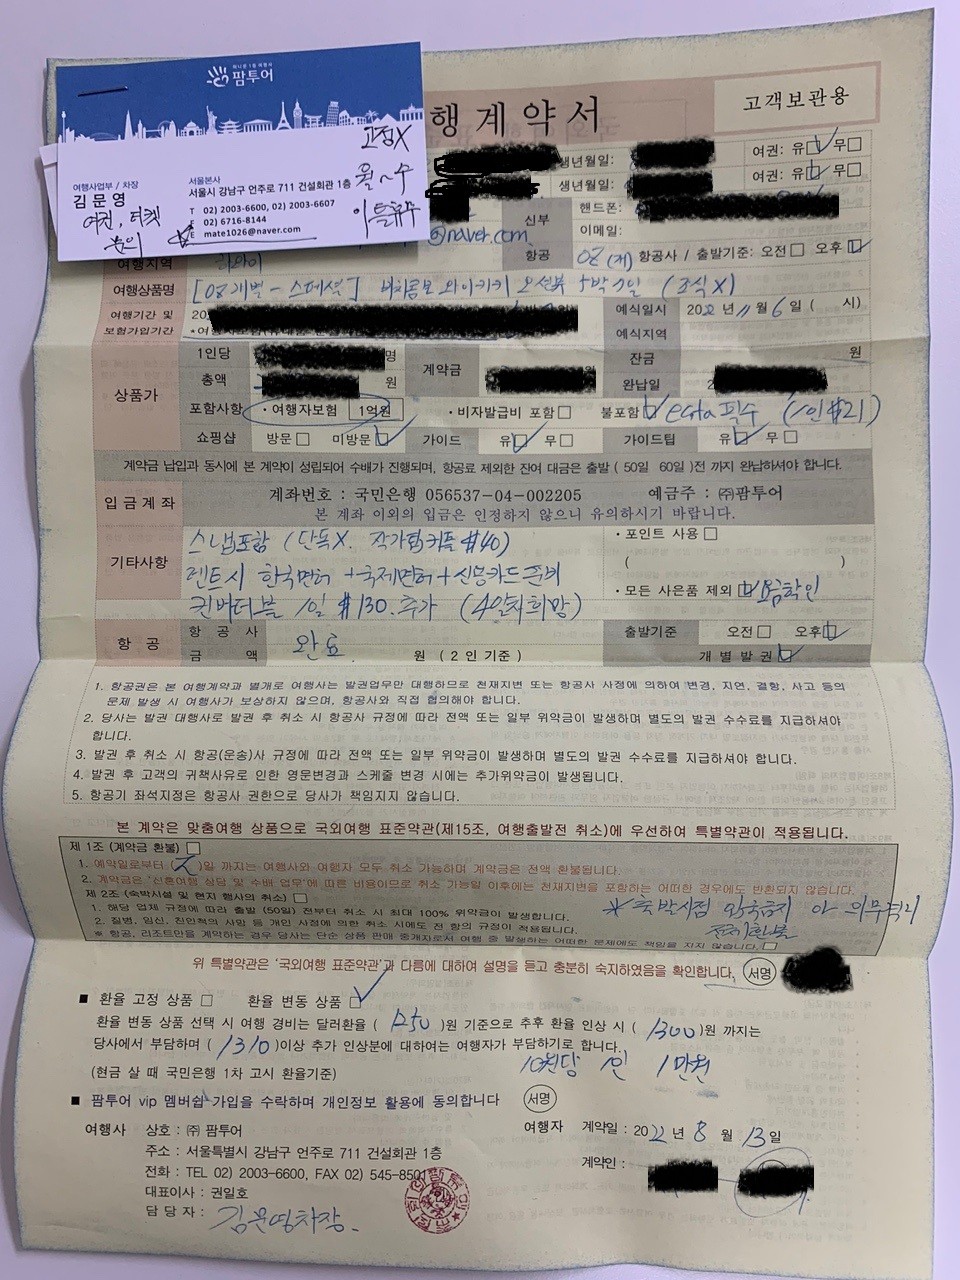 허니문 1등 여행사
팜투어
고정X
여행사업부 / 차장
김 문 영
여권, 티켓
문의
서울본사
서울시 강남구 언주로 711 건설회관 1층
월~수
T 02) 2003-6600, 02) 2003-6607
F 02) 6716-8144
E mate1026@naver.com
이틀휴무
행 계 약 서
고객보관용
생년월일:
여권: 유□ 무□
생년월일:
여권: 유□ 무□
신부
핸드폰:
이메일:
@naver.com
항공 OZ(저) 항공사 / 출발기준: 오전□ 오후□
여행지역 하와이
여행상품명 [OZ개별-스페셜] 비치콤보 와이키키 오션뷰 5박7일 (조식X)
여행기간 및
보험가입기간
20
예식일시 2022년 11월 6일 ( 시)
예식지역
상품가
1인당 명
총액 원
계약금
잔금 원
완납일 2
포함사항 · 여행자보험 1억원 · 비자발급비 포함□ 불포함□ esta 필수 (1인 $21)
쇼핑샵 방문□ 미방문□ 가이드 유□ 무□ 가이드팁 유□ 무□
계약금 납입과 동시에 본 계약이 성립되어 수배가 진행되며, 항공료 제외한 잔여 대금은 출발 ( 50일 60일 )전 까지 완납하셔야 합니다.
입금계좌
계좌번호 : 국민은행 056537-04-002205 예금주 : ㈜팜투어
본 계좌 이외의 입금은 인정하지 않으니 유의하시기 바랍니다.
기타사항
스냅포함 (단독X. 작가팁커플 $40)
렌트시 한국면허 +국제면허 +신용카드 준비
컨버터블 1일 $130.추가 (4일차희망)
· 포인트 사용□
( )
· 모든 사은품 제외□ 요금할인
항 공
항 공 사
금 액
완료
원 ( 2 인 기준 )
출발기준 오전□ 오후□
개 별 발 권□
1. 항공권은 본 여행계약과 별개로 여행사는 발권업무만 대행하므로 천재지변 또는 항공사 사정에 의하여 변경, 지연, 결항, 사고 등의
문제 발생 시 여행사가 보상하지 않으며, 항공사와 직접 협의해야 합니다.
2. 당사는 발권 대행사로 발권 후 취소 시 항공사 규정에 따라 전액 또는 일부 위약금이 발생하며 별도의 발권 수수료를 지급하셔야
합니다.
3. 발권 후 취소 시 항공(운송)사 규정에 따라 전액 또는 일부 위약금이 발생하며 별도의 발권 수수료를 지급하셔야 합니다.
4. 발권 후 고객의 귀책사유로 인한 영문변경과 스케줄 변경 시에는 추가위약금이 발생됩니다.
5. 항공기 좌석지정은 항공사 권한으로 당사가 책임지지 않습니다.
본 계약은 맞춤여행 상품으로 국외여행 표준약관(제15조, 여행출발전 취소)에 우선하여 특별약관이 적용됩니다.
제 1조 (계약금 환불)□
1. 예약일로부터 ( )일 까지는 여행사와 여행자 모두 취소 가능하며 계약금은 전액 환불됩니다.
2. 계약금은 "신혼여행 상담 및 수배 업무"에 따른 비용이므로 취소 가능일 이후에는 천재지변을 포함하는 어떠한 경우에도 반환되지 않습니다.
제 2조 (숙박시설 및 현지 행사의 취소)□
1. 해당 업체 규정에 따라 출발 (50일) 전부터 취소 시 최대 100% 위약금이 발생합니다.
2. 질병, 임신, 친인척의 사망 등 개인 사정에 의한 취소 시에도 전 항의 규정이 적용됩니다.
※ 항공, 리조트만을 계약하는 경우 당사는 단순 상품 판매 중개자로서 여행 중 발생하는 어떠한 문제에도 책임을 지지 않습니다.□
* 출발시점 입국금지 or 의무격리
전액환불
위 특별약관은 '국외여행 표준약관'과 다름에 대하여 설명을 듣고 충분히 숙지하였음을 확인합니다. 서명
■ 환율 고정 상품 □ 환율 변동 상품 □
환율 변동 상품 선택 시 여행 경비는 달러환율 ( 1250 )원 기준으로 추후 환율 인상 시 ( 1300 )원 까지는
당사에서 부담하며 ( 1310 )이상 추가 인상분에 대하여는 여행자가 부담하기로 합니다.
(현금 살 때 국민은행 1차 고시 환율기준)
10원당 1인 1만원
■ 팜투어 vip 멤버쉽 가입을 수락하며 개인정보 활용에 동의합니다 서명
여행사 상호 : ㈜ 팜투어
주소 : 서울특별시 강남구 언주로 711 건설회관 1층
전화 : TEL 02) 2003-6600, FAX 02) 545-8501
대표이사 : 권일호
담 당 자 : 김문영차장
여행자 계약일 : 2022년 8 월 13일
계약인 :